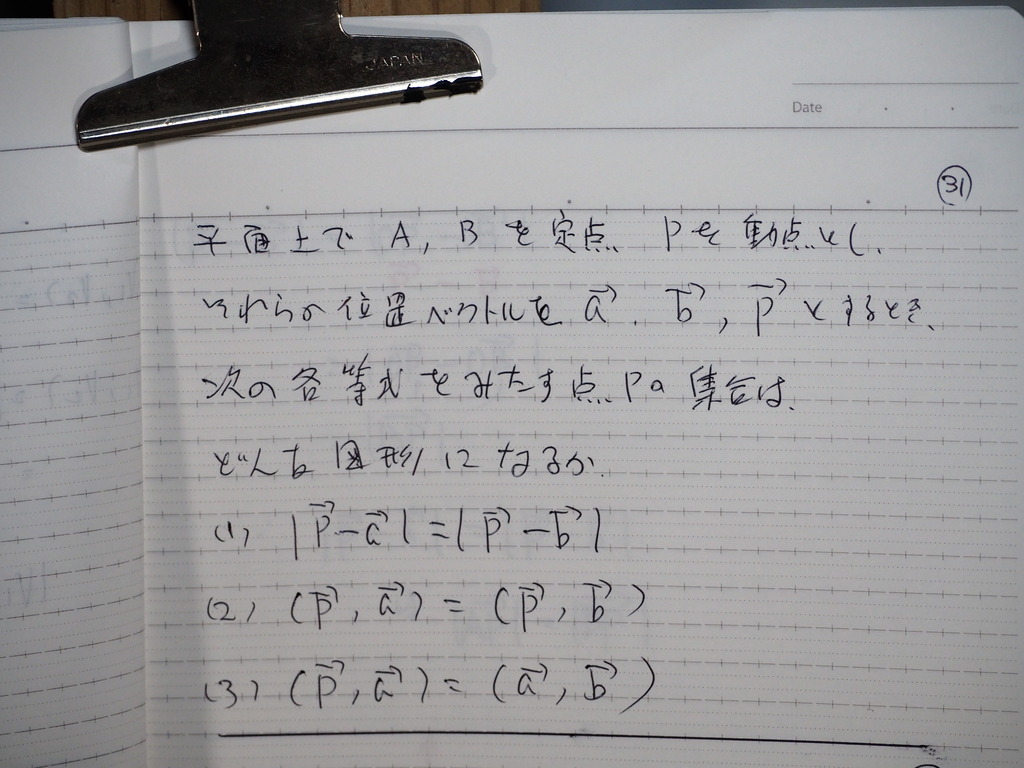 JAPAN
Date
㉛
平面上で A, B を定点、Pを動点とし、
それらの位置ベクトルを a→、b→, p→ とするとき、
次の各等式をみたす点Pの集合は、
どんな図形になるか。
(1) |p→-a→|=|p→-b→|
(2) (p→, a→) = (p→, b→)
(3) (p→, a→) = (a→, b→)